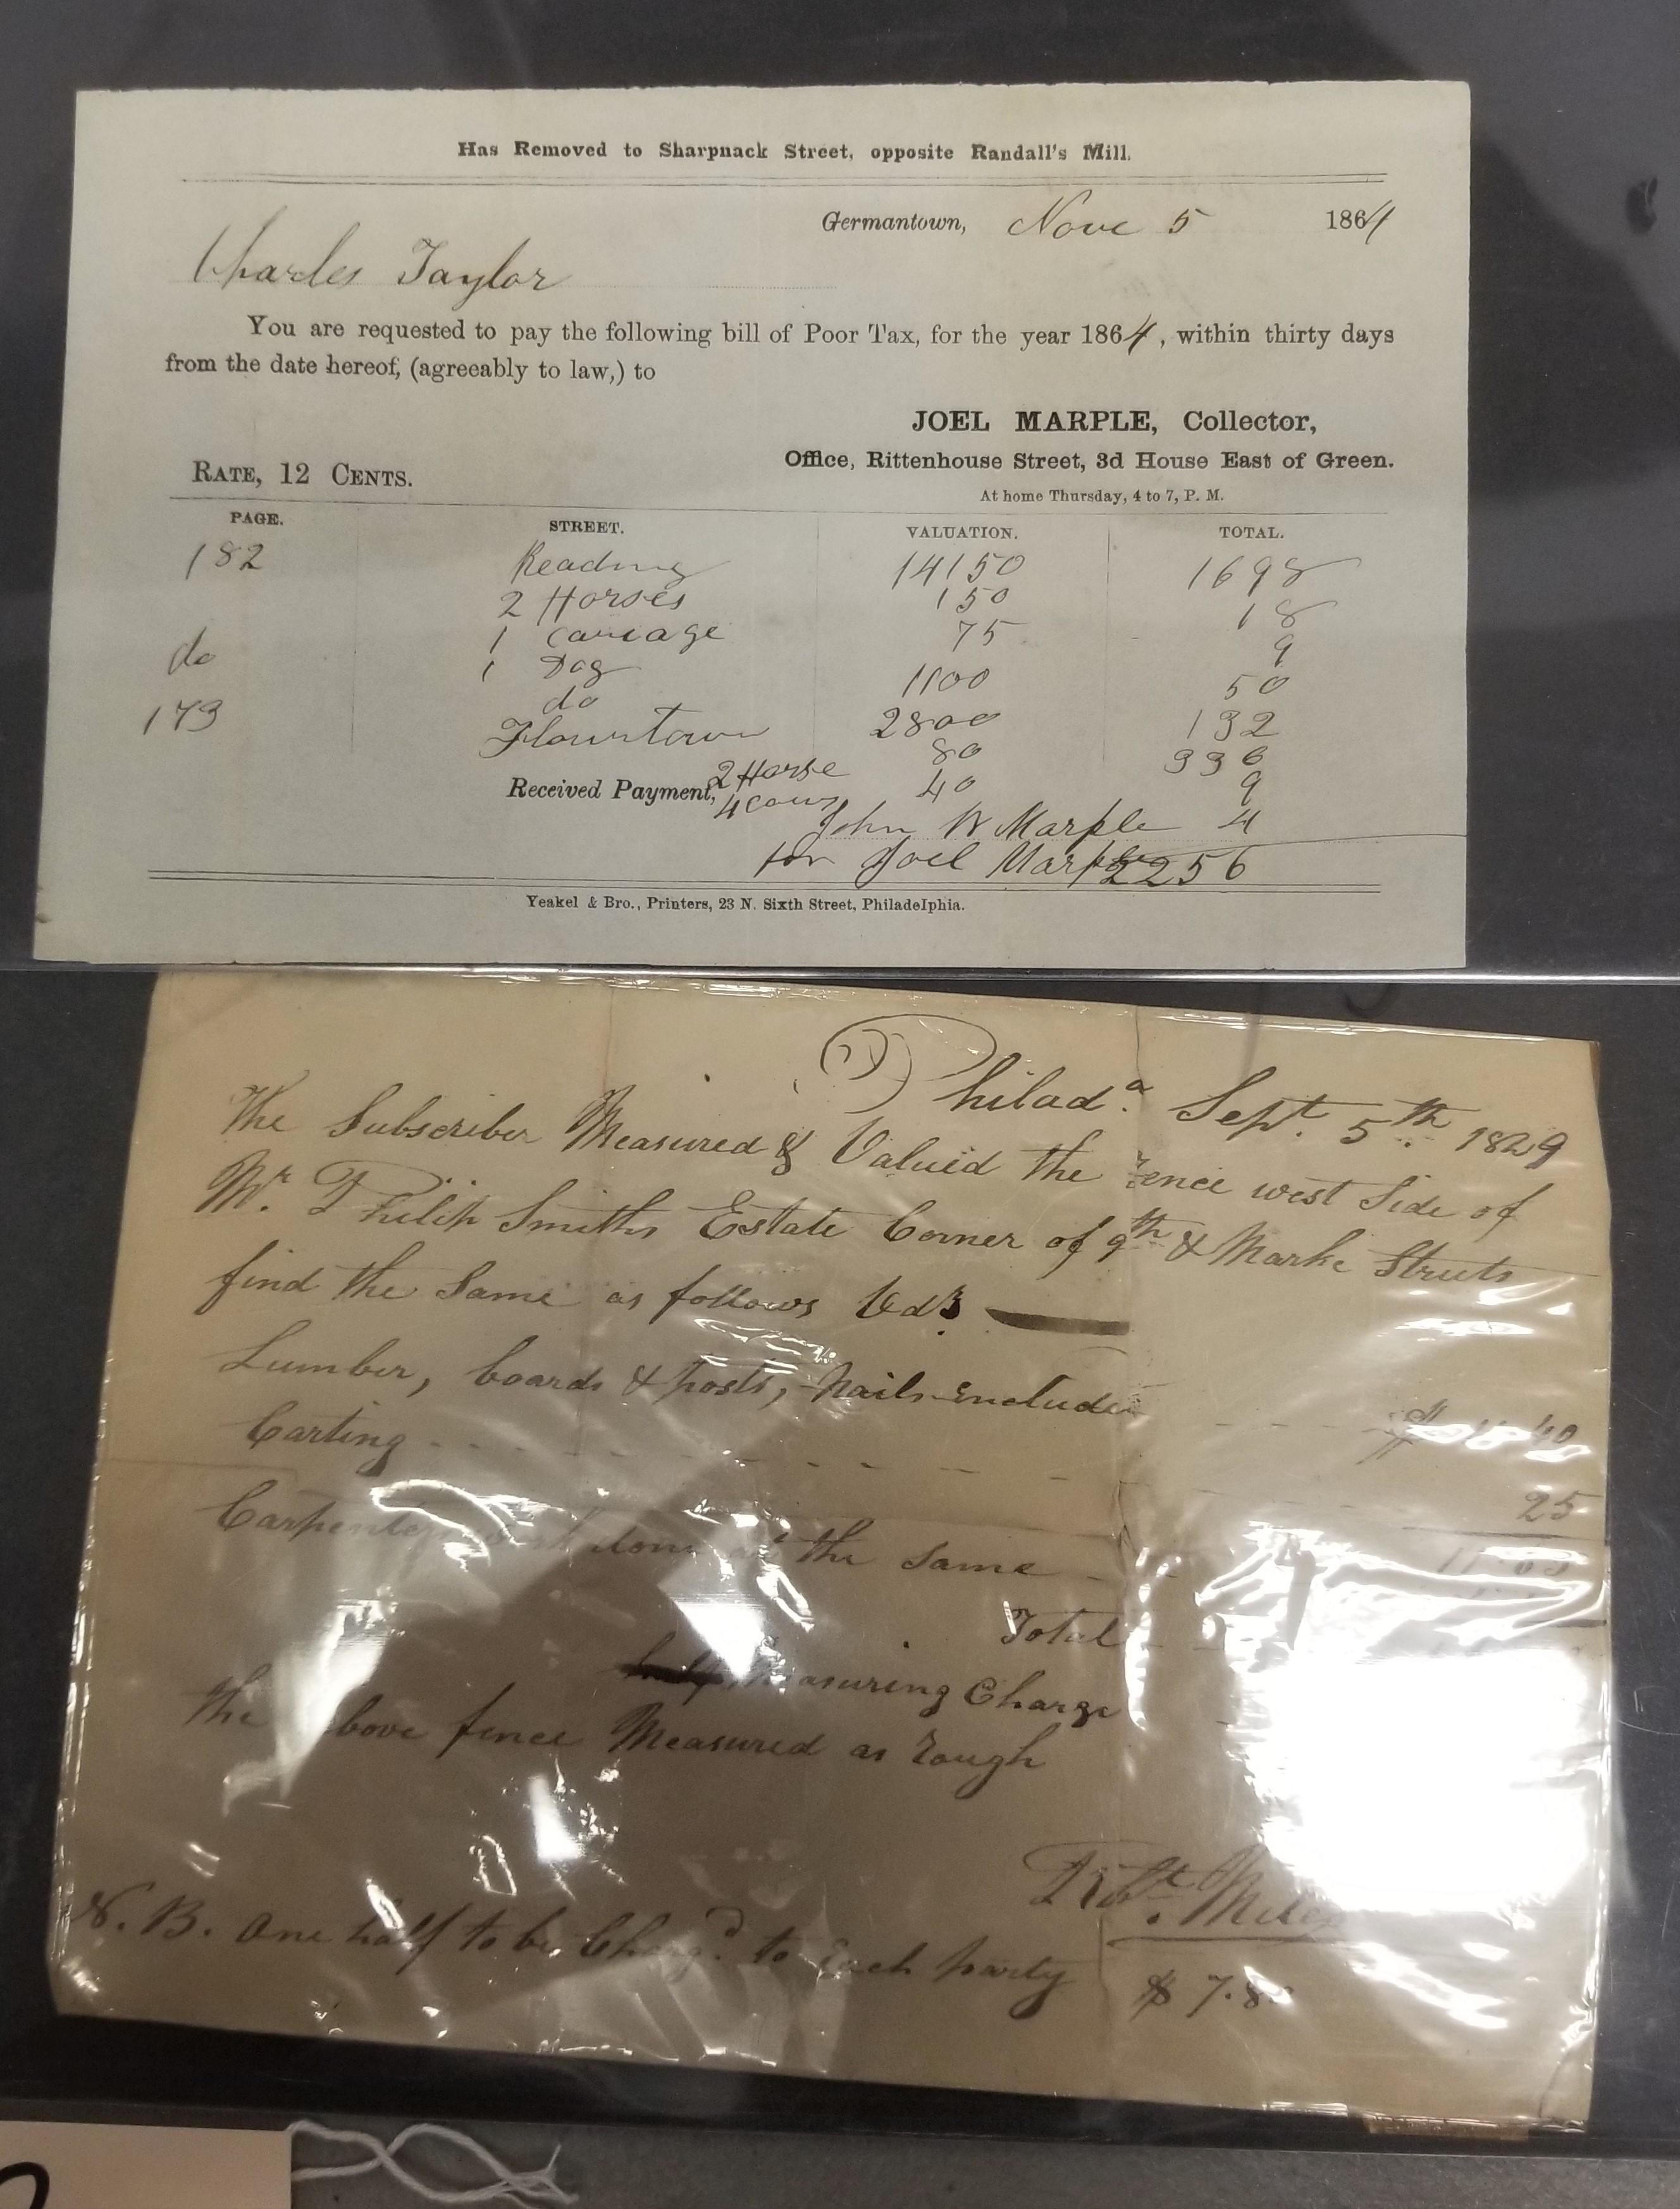 Has Removed to Sharpnack Street, opposite Randall's Mill.
Germantown, Nove 5 1864
Charles Taylor
You are requested to pay the following bill of Poor Tax, for the year 1864, within thirty days
from the date hereof, (agreeably to law,) to
JOEL MARPLE, Collector,
Office, Rittenhouse Street, 3d House East of Green.
RATE, 12 CENTS.
At home Thursday, 4 to 7, P. M.
PAGE. STREET. VALUATION. TOTAL.
182 Reading 14150 1698
2 Horses 150 18
1 Carriage 75 9
do 1 Dog 50
do 1100 132
173 Flourtown 2800 336
2 Horse 80 9
Received Payment, 4 Cows 40 4
John W Marple
for Joel Marple 2256
Yeakel & Bro., Printers, 23 N. Sixth Street, Philadelphia.
Philada. Sept. 5th 1829
The Subscriber Measured & Valued the fence west Side of
Mr. Philip Smiths Estate Corner of 9th & Marke Streets
find the Same as follows Vdz
Lumber, boards & posts, Nails Include 40
Carting 25
Carpenter work done at the Same
Total
Measuring Charge
the above fence Measured as rough
Robt. Miles
N. B. One half to be Charg'd to Each party $ 7.80